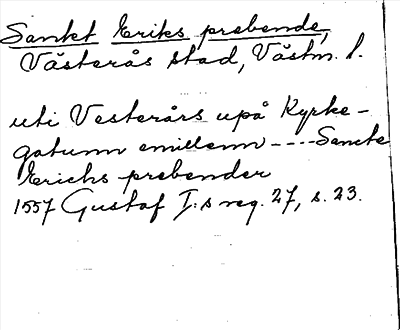 Sankt Eriks prebende,
Västerås stad, Västm. l.
uti Vesterårs upå Kyrke-
gatunn emillenn ---- Sancte
Erichs prebender
1557 Gustaf I:s reg. 27, s. 23.